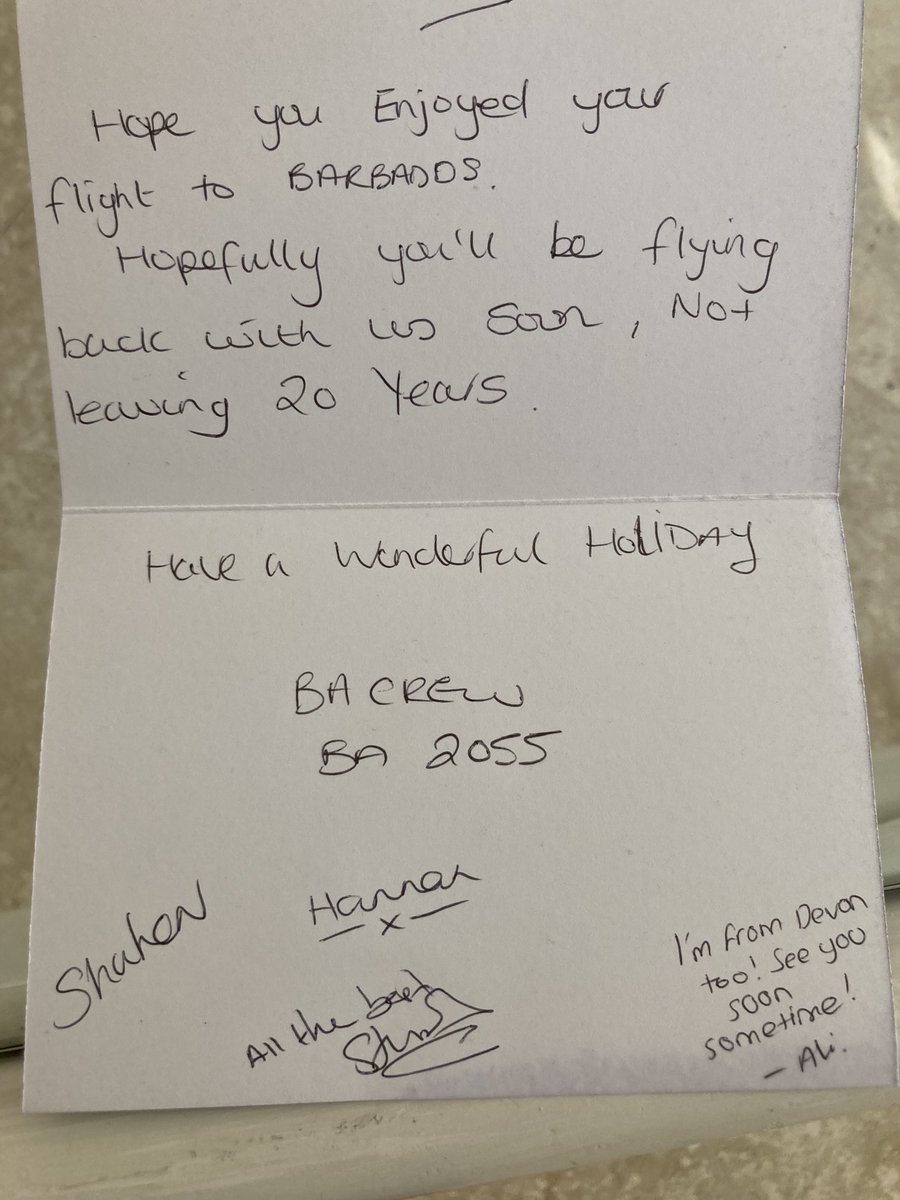 Hope you Enjoyed your
flight to BARBADOS.
Hopefully you'll be flying
back with us soon, Not
leaving 20 Years.
Have a Wonderful HOLIDAY
BA CREW
BA 2055
Hannah
x
All the best
I'm from Devon
too! See you
soon
sometime!
- Ali.